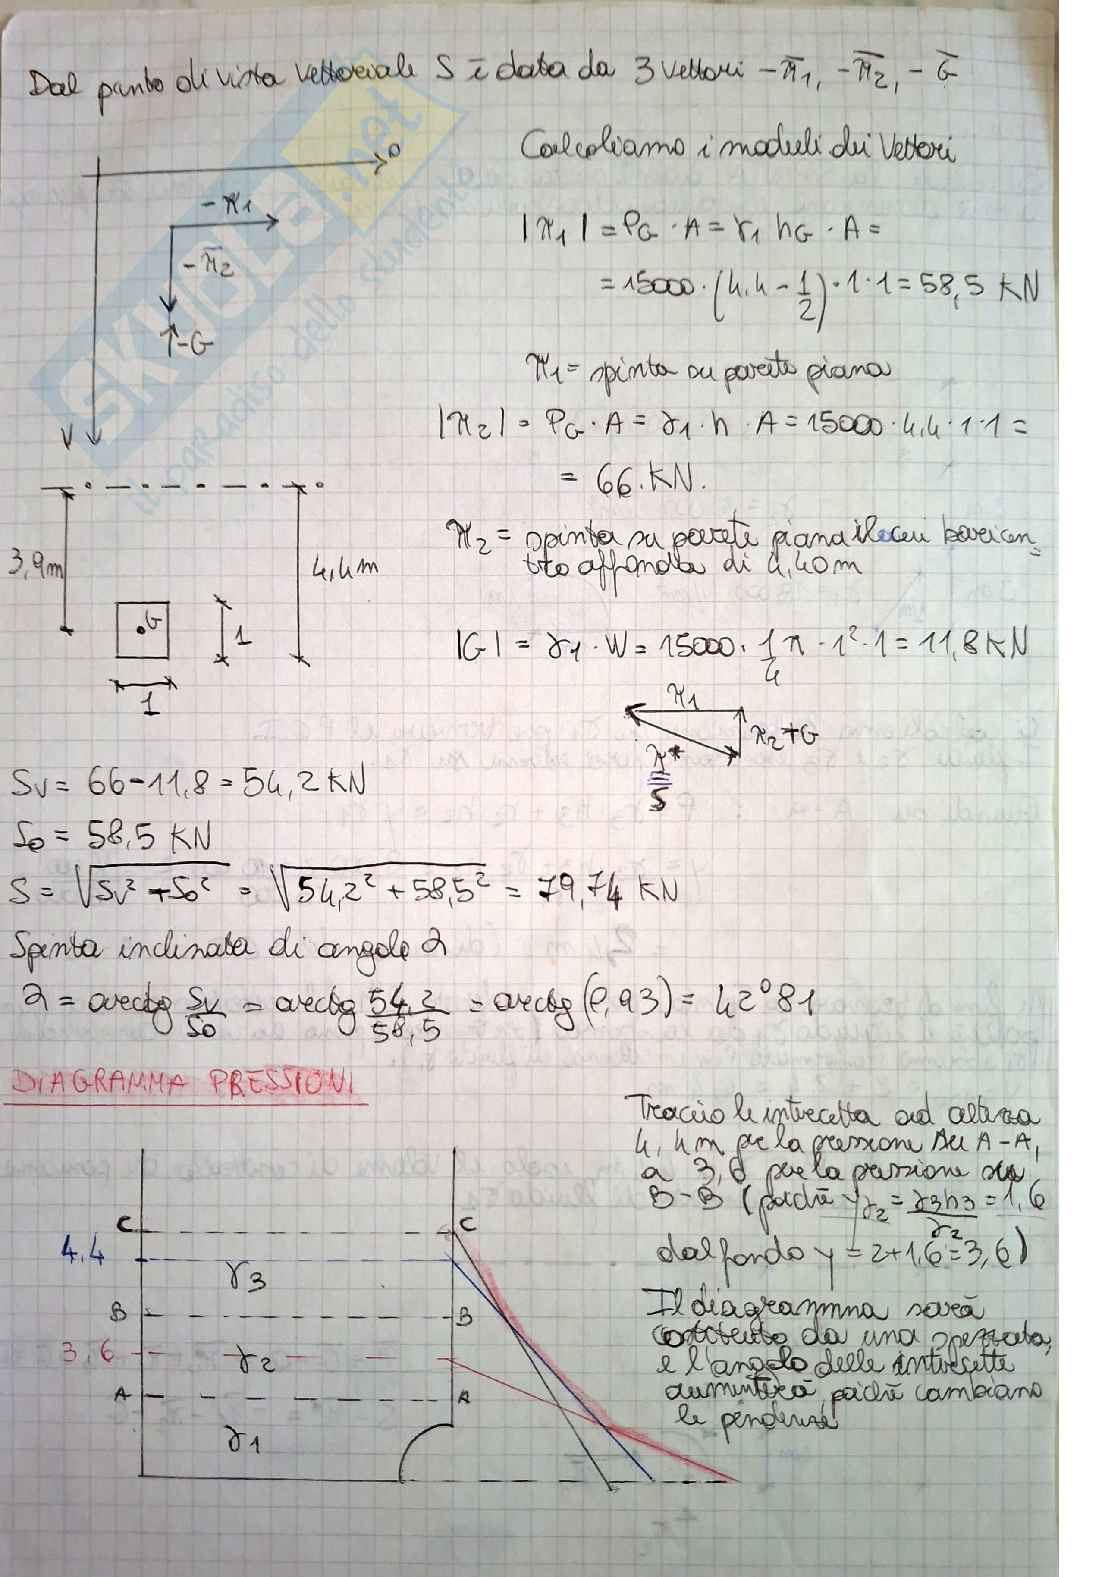 Dal punto di vista vettoriale S è data da 3 vettori -π̄1, -π̄2, -Ḡ
Calcoliamo i moduli dei Vettori
O
-π1
-π̄2
-G
V
|π1| = PG · A = γ1 hG · A =
= 15000 · (4,4 - 1/2) · 1 · 1 = 58,5 KN
π1 = spinta su parete piana
|π2| = PG · A = γ1 · h · A = 15000 · 4,4 · 1 · 1 =
= 66 KN.
π2 = spinta su parete piana il cui baricen=
tro affonda di 4,40m
|G| = γ1 · W = 15000 · 1/4 π · 1² · 1 = 11,8 KN
3,9m
4,4m
G
1
1
π1
π2+G
π*
S
Sv = 66-11,8 = 54,2 KN
So = 58,5 KN
S = √(Sv² + So²) = √(54,2² + 58,5²) = 79,74 KN
Spinta inclinata di angolo α
α = arctg Sv/So = arctg 54,2/58,5 = arctg (0,93) = 42°81
DIAGRAMMA PRESSIONI
Traccio le intercetta ad altezza
4,4m per la pressione su A-A,
a 3,6 per la pressione su
B-B (poichè yγ2 = γ3h3/γ2 = 1,6
dal fondo y = 2+1,6 = 3,6)
Il diagramma sarà
costituito da una spezzata,
e l'angolo delle intercette
aumenterà poichè cambiano
le pendenze
C
C
4,4
γ3
B
B
3,6
γ2
A
A
γ1
SKUOLA.net
il paradiso dello studente